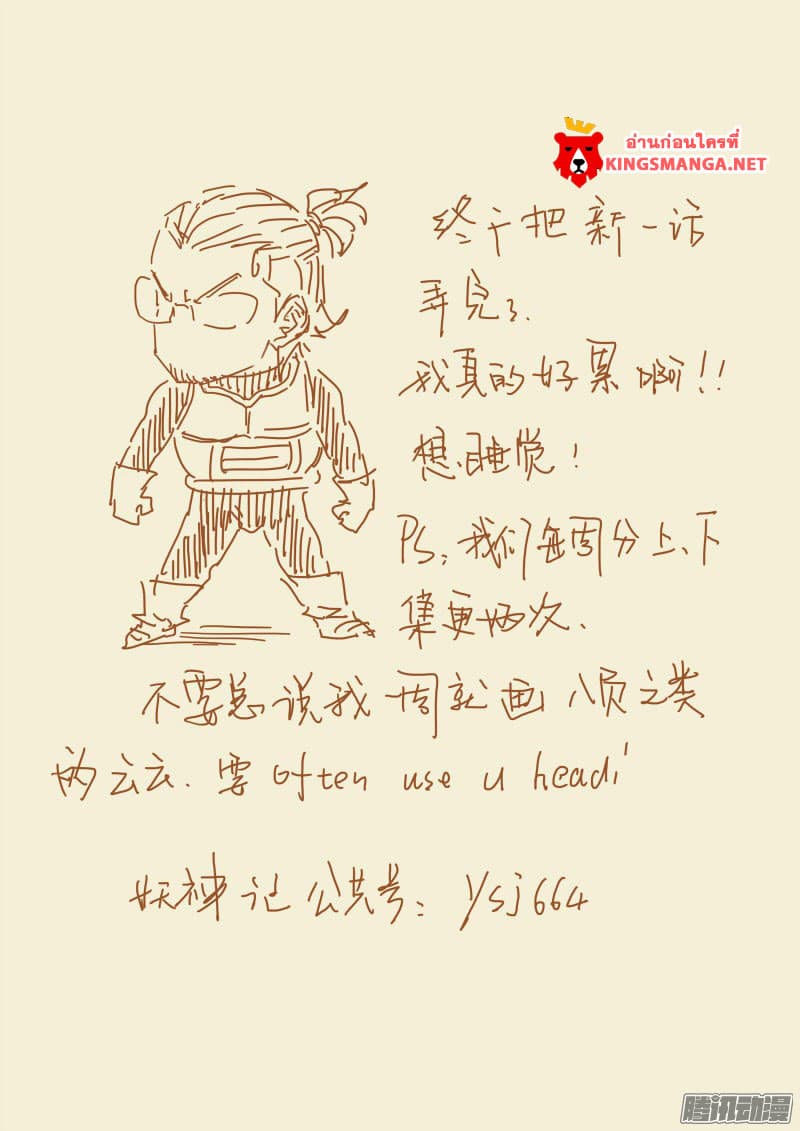 อ่านก่อนใครที่
KINGSMANGA.NET
终于把新一话
弄完了.
我真的好累啊!!
想睡觉!
PS:我们每周分上、下
集更两次、
不要总说我一周就画八页之类
的云云.要often use u head!
妖神记公共号:ysj664
腾讯动漫